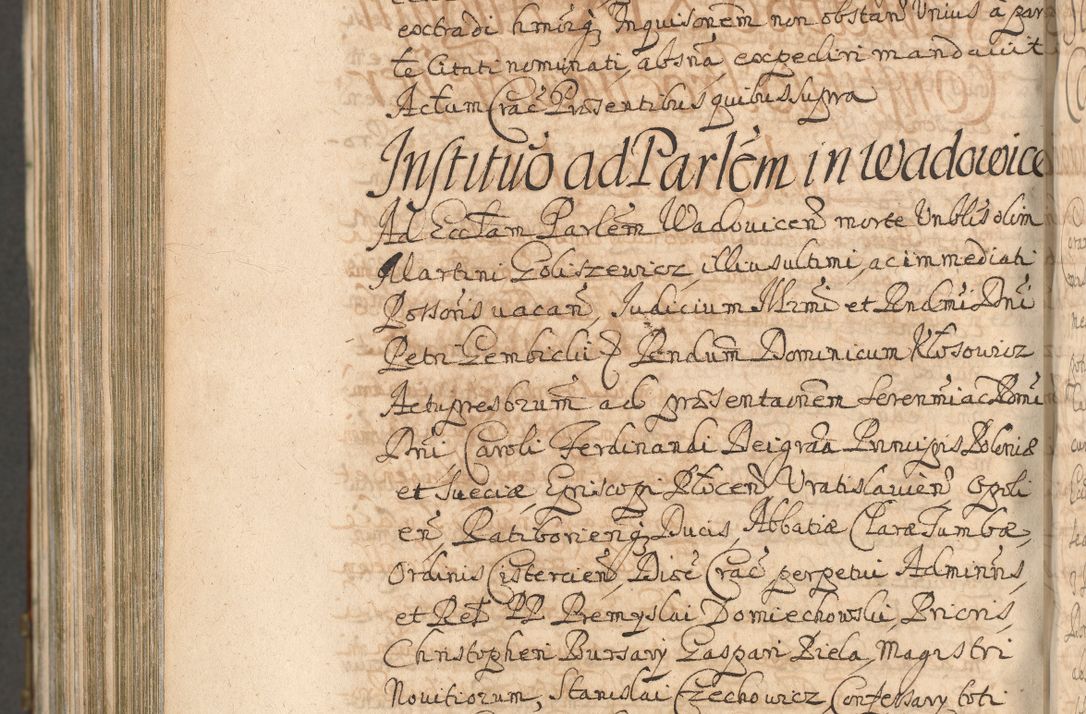 extradi hmõrg Inquisonem non obstan Unius à par
te Citati nominati, absña, expediri mandauit
Actum Crac Præsentibus quibus supra
Institũo ad Parlẽm in Wadowice
Ad Ecctam Parlem Wadouicen morte Vnblis olim
Martini Goliszewicz, illius ultimi, ac immediati
Possoris vacan, Judicium Illrmi et Rndmi Dni
Petri Gembicki Rendum Dominicum Kłosowicz
Actu presbrum ad præsentaonem Serenmi ac Rdmi
Dni Caroli Ferdinandi Dei graa Principis Poloniæ
et Sueciæ, Episcopi Płocen, Vratislauien, Opoli
en, Ratiborieng Ducis, Abbatiæ Claræ Tumbæ,
Ordinis Cistercien, Dioc Crac perpetui Adminris,
et Rel PP Premyslai Domiechowski, Prioris,
Christopheri Bursary Gaspari Piela, Magistri
Nouitiorum, Stanislai Czechowicz, Confessary toti